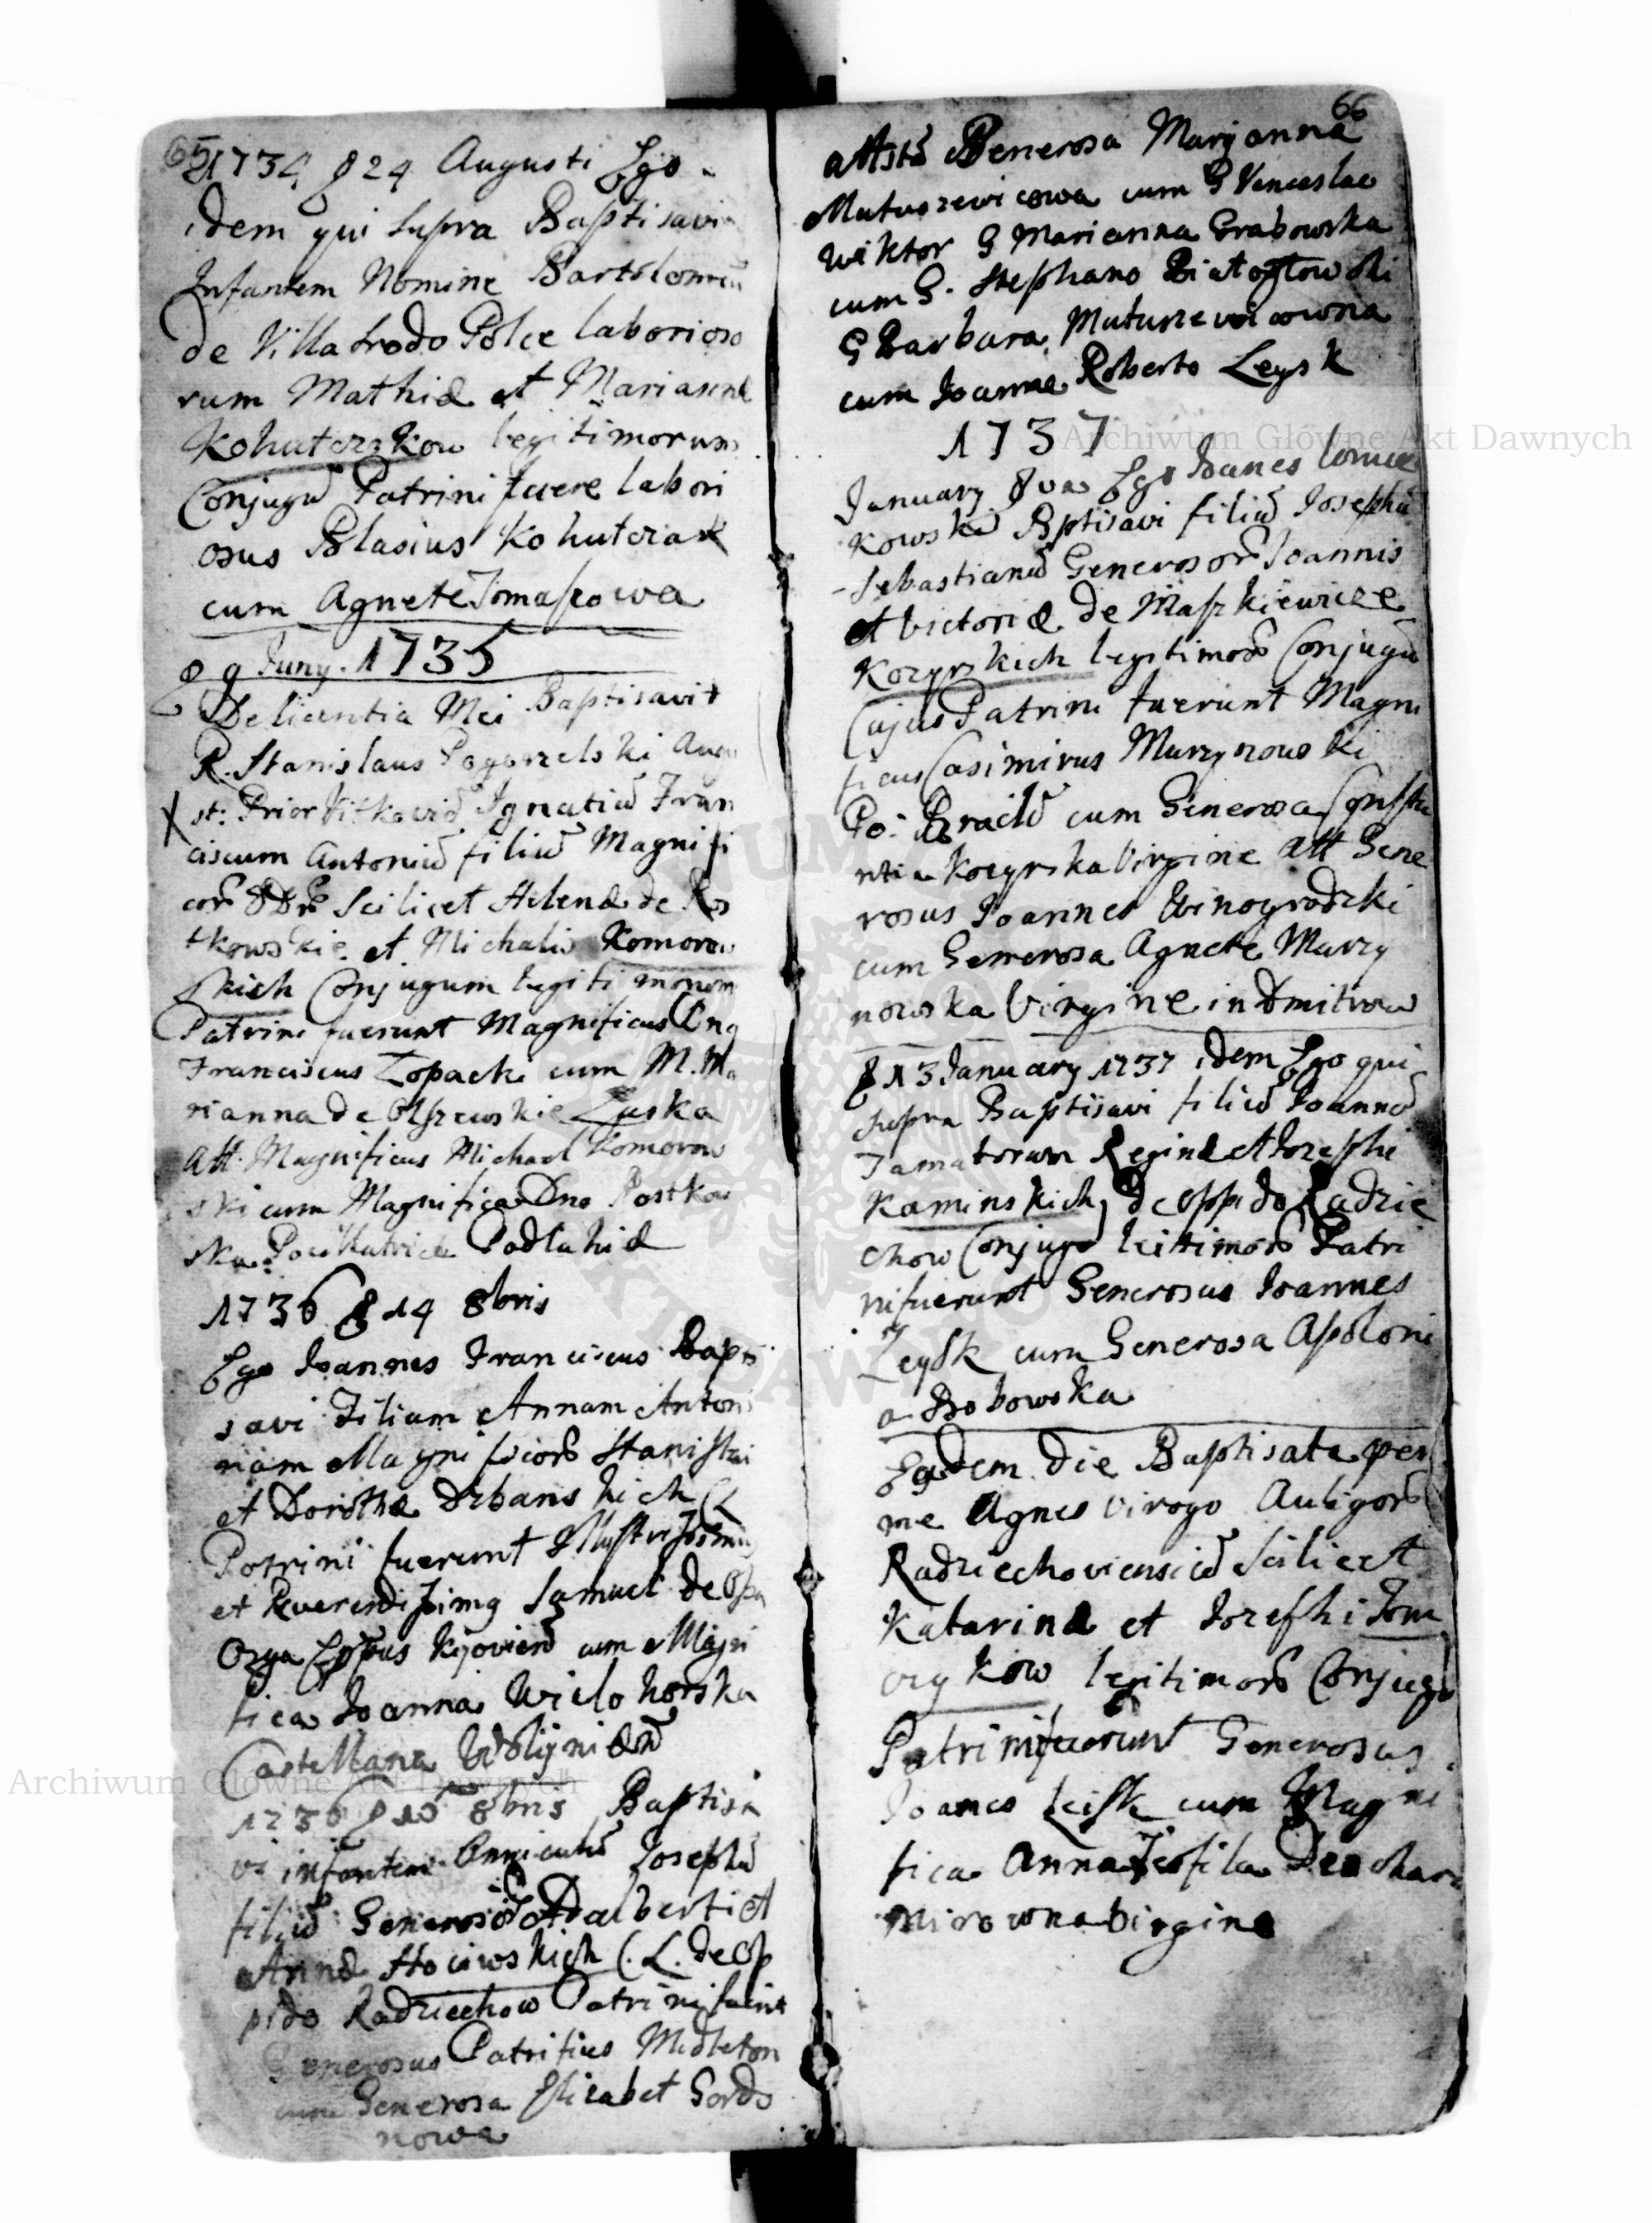 65
1734 8 24 Augusti Ego
idem qui supra Baptisavi
Infantem Nomine Bartolomeu
de Villa Srodo Polce laborioso
rum Mathiæ et Mariannæ
Kohutczakow legitimorum
Conjugu Patrini fuere labori
osus Blasius Kohutcrak
cum Agnete Tomaszowa
8 9 Juny. 1735
De licentia Mei Baptisavit
R. Stanislaus Pogorzelski Augu
st: Prior Vitkovie Ignatiu Fran
ciscum Antoniu filiu Magnifi
coru DD Scilicet Helenæ de Ros
tkowskie et Michalis Komorow
skich Conjugum legitimorum
Patrini fuerunt Magnificus Dng
Franciscus Zopacki cum M. Ma
rianna de Olszewskie Zuska
Att. Magnificus Michael Komorow
ski cum Magnifica Dna Rostkow
ska Podlahiæ
1736 8 14 8bris
Ego Ioannes Franciscus Bapti
savi Filiam Annam Antoni
nam Magnificoru Stanislai
et Dorothæ Urbanskich C L
Patrini fuerunt Illustrissimus
et Reverendissimg Samuel de Osa
Ozga Eppus Kijovien cum Magni
fica Ioanna Wielohorska
Castellana Wolynien
1736 8 15 8bris Baptisa
vi infantem Anniculu Josephu
filiu Generosoru Adalberti et
Annæ Hociwskich C. L. de Op
pido Radziechow Patrini fuerunt
Generosus Patritius Midleton
cum Generosa Elizabet Gordo
nowa
66
Attstu Generosa Maryanna
Matuszewicowa cum G Venceslao
Wiktor G Marianna Grabowska
cum G. Stephano Bialoglowski
G Barbara Matuszewicowna
cum Joanne Roberto Leysk
1737
January 8va Ego Ioanes Comie
kowski Bptisavi filiu Josephu
Sebastianu Generosoru Joannis
et Victoriæ de Maszkiewicze
Kozyrskich legitimoru Conjugu
Cujus Patrini fuerunt Magni
ficus Casimirus Murzynowski
Po: Bracla cum Generosa Consta
ntia Kozyrska Virgine Att Gene
rosus Joannes Winogrodzki
cum Generosa Agnete Murzy
nowska Virgine in Dmitrow
8 13 January 1737 idem Ego qui
supra Baptisavi filiu Joannem
Famatorum Reginæ et Jozephi
Kaminskich de Oppido Radzie
chow Conjugu leittimoru Patri
ni fuerunt Generosus Ioannes
Leysk cum Generosa Apoloni
a Bobowska
Eadem die Baptisata per
me Agnes Virogo Auligoru
Radziechoviensiu Scilicet
Katarinæ et Jozephi Tom
czykow legitimoru Conjugu
Patrini fuerunt Generosus
Joanes Leisk cum Magni
fica Anna Teofila Deachara
mirowna Virgine
Archiwum Główne Akt Dawnych
Archiwum Główne Akt Dawnych